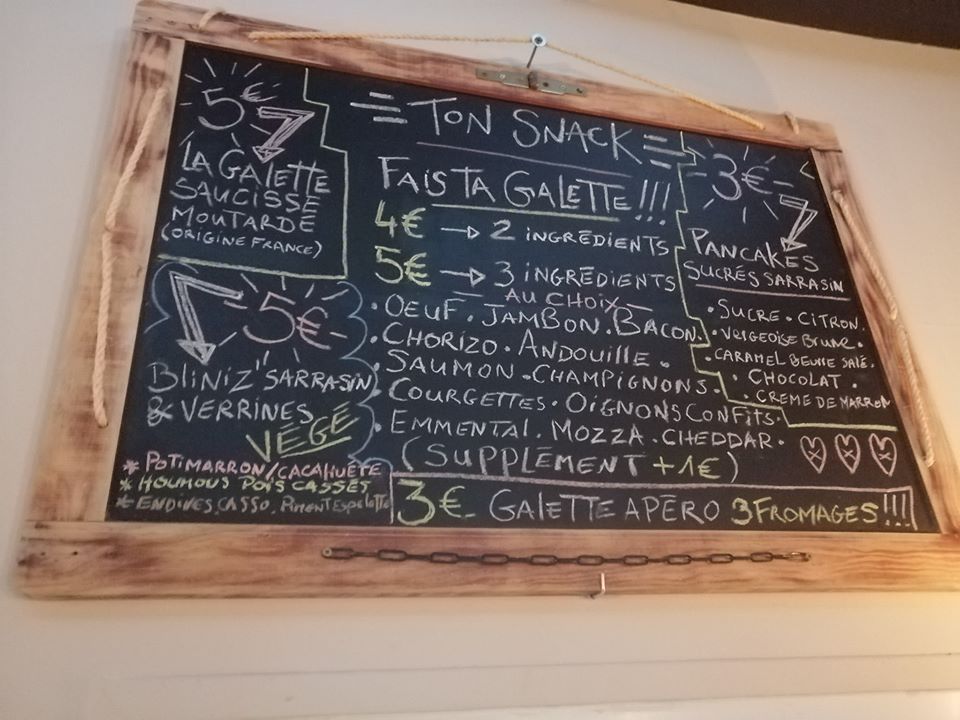 5€
LA GALETTE
SAUCISSE
MOUTARDE
(ORIGINE FRANCE)
5€
BLINIZ' SARRASIN
& VERRINES
VÉGÉ
* POTIMARRON/CACAHUÈTE
* HOUMOUS POIS CASSÉS
* ENDIVES, CASSO, PIMENT ESPELETTE
= TON SNACK =
FAIS TA GALETTE !!!
4€ → 2 INGRÉDIENTS
5€ → 3 INGRÉDIENTS
— AU CHOIX —
• OEUF • JAMBON • BACON •
• CHORIZO • ANDOUILLE •
• SAUMON • CHAMPIGNONS •
• COURGETTES • OIGNONS CONFITS •
• EMMENTAL • MOZZA • CHEDDAR •
(SUPPLÉMENT +1€)
3€ GALETTE APÉRO 3 FROMAGES !!!
-3€-
PANCAKES
SUCRÉS SARRASIN
• SUCRE • CITRON •
• VERGEOISE BRUNE •
• CARAMEL BEURRE SALÉ •
• CHOCOLAT •
• CREME DE MARRON